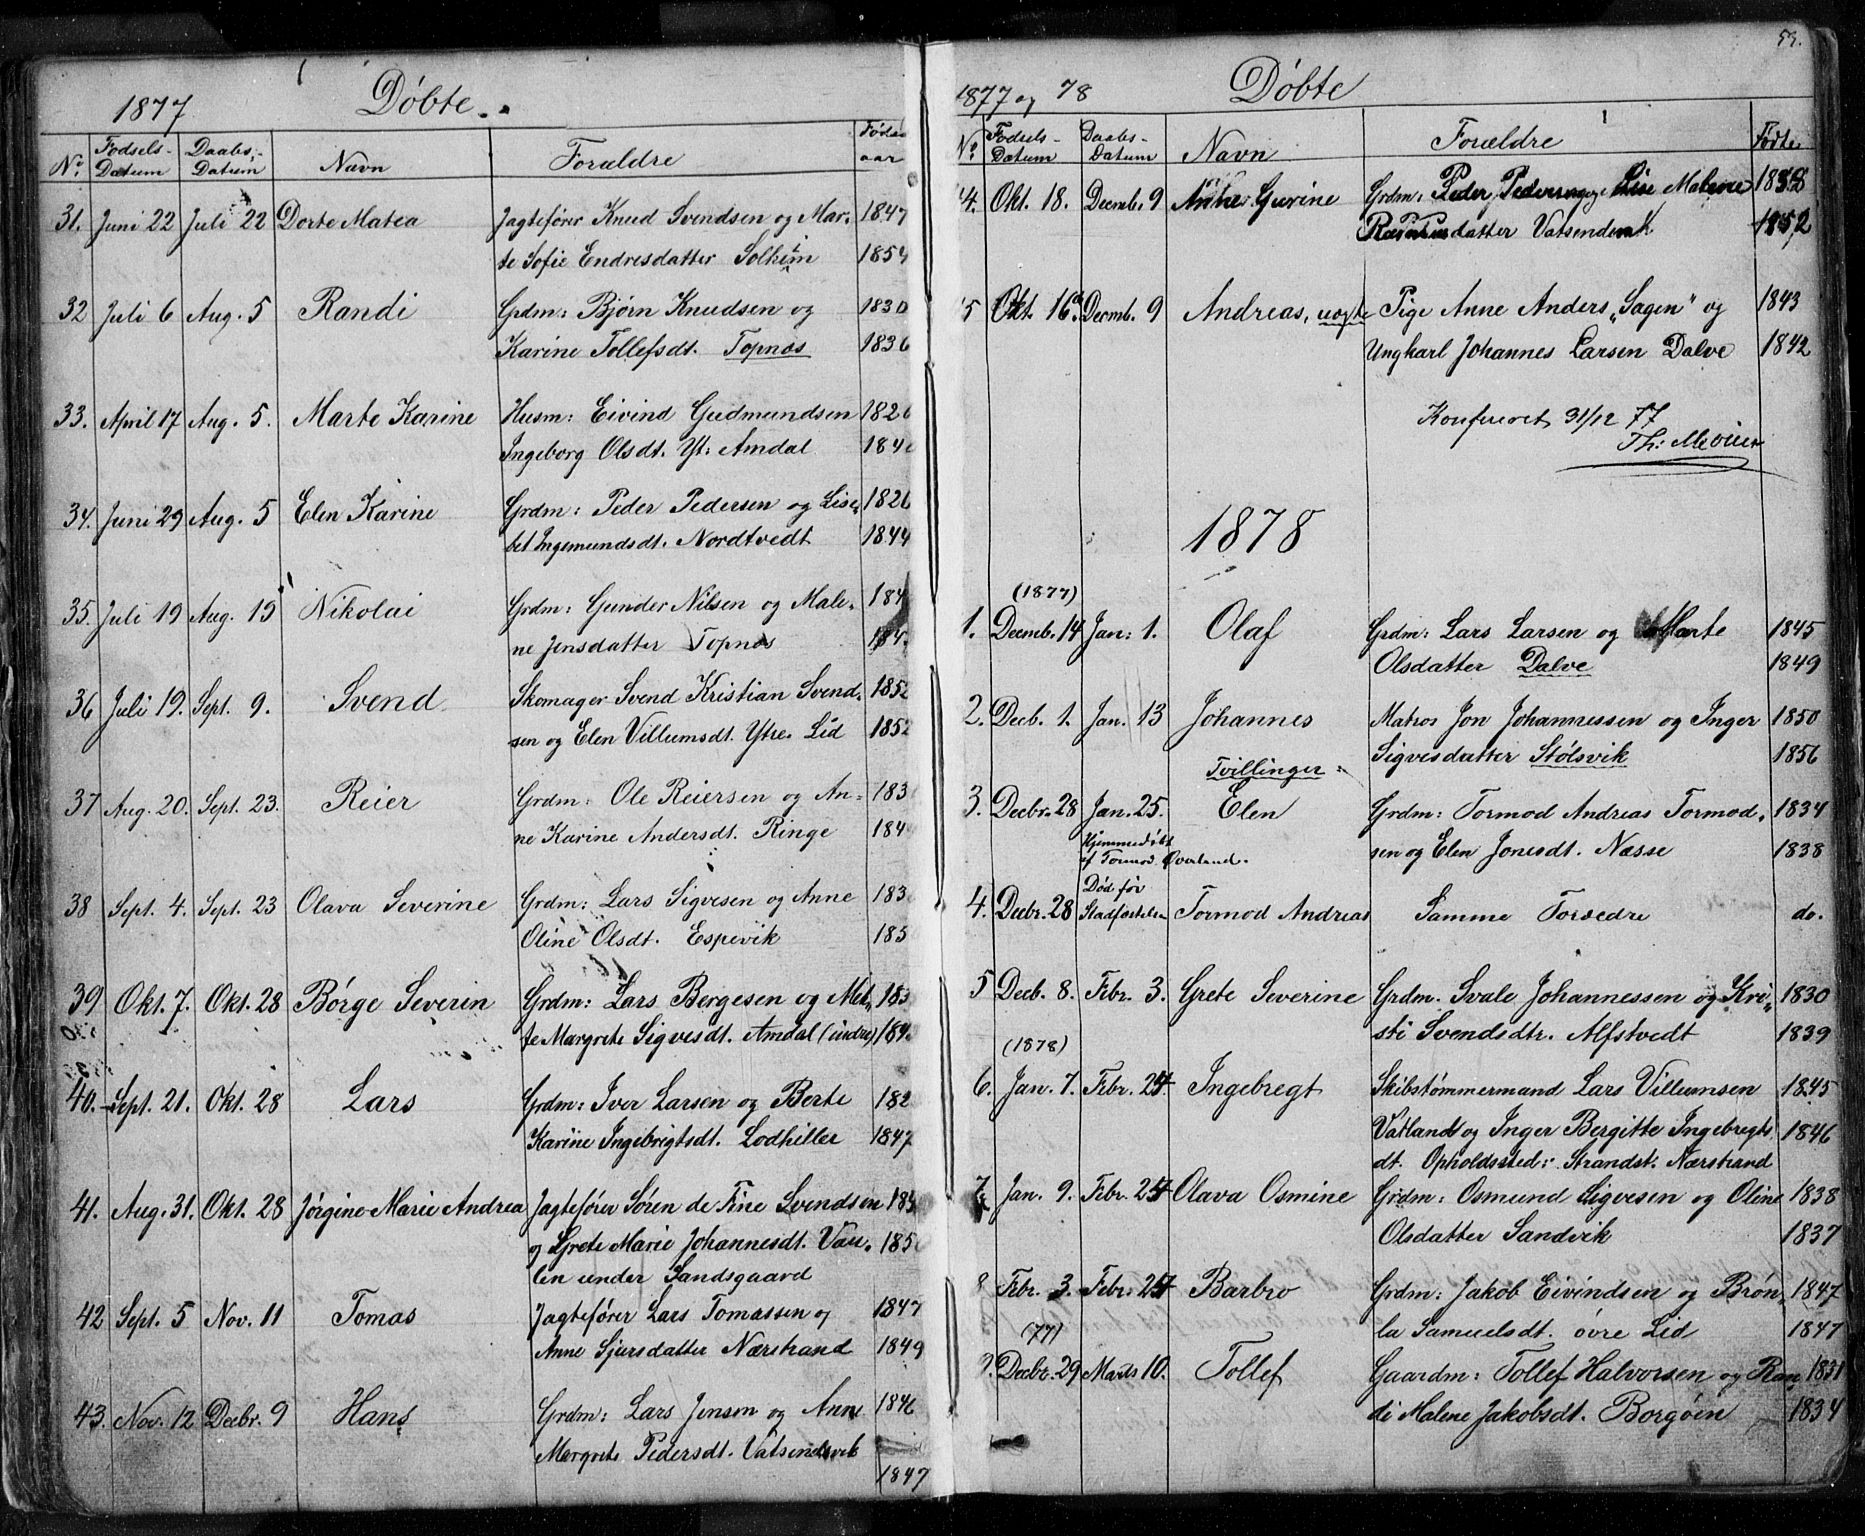 1877 Døbte.
No. Fødsels-Datum Daabs-Datum Navn Forældre Føde-aar
31. Juni 22 Juli 22 Dorte Matea Jagtefører Knud Svendsen og Mar- 1847
te Sofie Endresdatter Solheim 1854
32 Juli 6 Aug. 5 Randi Grdm: Bjørn Knudsen og 1830
Karine Tollefsdt. Topnæs 1836
33. April 17 Aug. 5. Marte Karine Husm: Eivind Gudmundsen 1826
Ingeborg Olsdt. Yt: Amdal 184
34. Juni 29 Aug. 5 Elen Karine Grdm: Peder Pedersen og Lise- 1826
bet Ingemundsdt. Nordtvedt 1844
35. Juli 19 Aug. 19 Nikolai Grdm: Gunder Nilsen og Male- 184
ne Jensdatter Topnæs 184
36 Juli 19. Sept. 9. Svend Skomager Svend Kristian Svend- 1852
sen og Elen Villumsdt. Ytre Lid 1852
37 Aug. 20. Sept. 23. Reier Grdm: Ole Reiersen og An- 183
ne Karine Andersdt. Ringe 184
38 Sept. 4. Sept. 23 Olava Severine Grdm: Lars Sigvesen og Anne 183
Oline Olsdt. Espevik 183
39 Okt. 7. Okt. 28 Børge Severin Grdm: Lars Bergesen og Met- 183
te Margrete Sigvesdt. Amdal (indre) 184
40. Sept. 21. Okt. 28 Lars Grdm: Iver Larsen og Berte 182
Karine Ingebrigtsdt. Lodhiller 1847
41. Aug. 31. Okt. 28 Jørgine Marie Andrea Jagtefører Søren de Fine Svendsen 184
og Grete Marie Johannesdt. Vau- 185
len under Sandsgaard
42 Sept. 5 Nov. 11 Tomas Jagtefører Lars Tomassen og 1847
Anne Sjursdatter Nærstrand 1849
43. Nov. 12 Decbr. 9 Hans Grdm: Lars Jensen og Anne 1846
Margrete Pedersdt. Vatsendvik
1847
53.
1877 og 78 Døbte
No. Fødsels-Datum Daabs-Datum Navn Forældre Fødte
4. Okt. 18. Decemb. 9 Gurine Grdm: Peder Pedersen og Lise Malene 1852
datter Vatsendvik 1852
5 Okt. 16. Decmb. 9 Andreas, uægte Pige Anne Anders „Sagen" og 1843
Ungkarl Johannes Larsen Dalve 1842
Konfereret 31/12 77
Th: Movius
1878
(1877)
1. Decemb. 14 Jan: 1. Olaf Grdm: Lars Larsen og Marte 1845
Olsdatter Dalve 1849
2. Decb. 1. Jan. 13 Johannes Matros Jon Johannessen og Inger 1850
Sigvesdatter Stølsvik 1856
Tvillinger:
3. Decbr. 28 Jan. 25. Elen Grdm: Tormod Andreas Tormod- 1834
Hjemmedøbt
af Tormod Øverland.
sen og Elen Jonesdt. Næsse 1838
Død før
4. Decbr. 28 Stadfæstelsen Tormod Andreas Samme Forældre do.
5 Decb. 8. Febr. 3. Grete Severine Grdm. Svale Johannessen og Kri- 1830
sti Svendsdtr. Alfstvedt 1839
(1878)
6. Jan. 7. Febr. 24 Ingebregt Skibstømmermand Lars Villumsen 1845
Vatland og Inger Bergitte Ingebregts 1846
dt. Opholdssted: Strandst. Nærstrand
7. Jan. 9. Febr. 24 Olava Osmine Grdm: Osmund Sigvesen og Oline 1838
Olsdatter Sandvik 1837
8 Febr. 3. Febr. 24 Barbro Grdm: Jakob Eivindsen og Brøn- 1847
la Samuelsdt. øvre Lid 1847
(77)
9. Decbr. 29 Marts 10. Tollef Gaardm: Tollef Halvorsen og Ran- 1831
di Malene Jakobsdt. Borgøin 1834